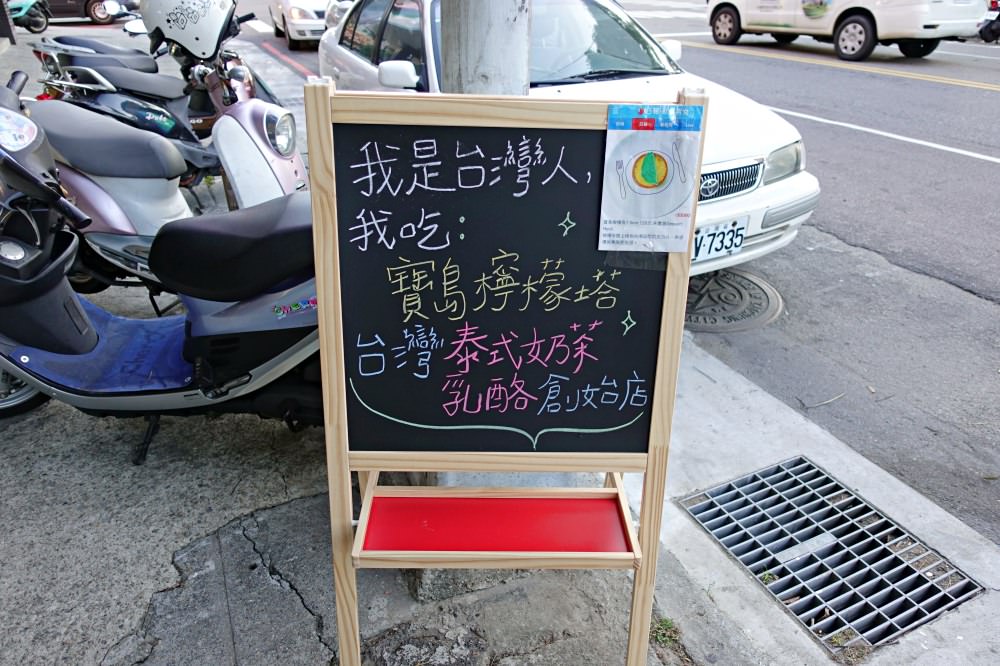 我是台灣人,
我吃:
寶島檸檬塔
台灣泰式奶茶
乳酪創始店
7335